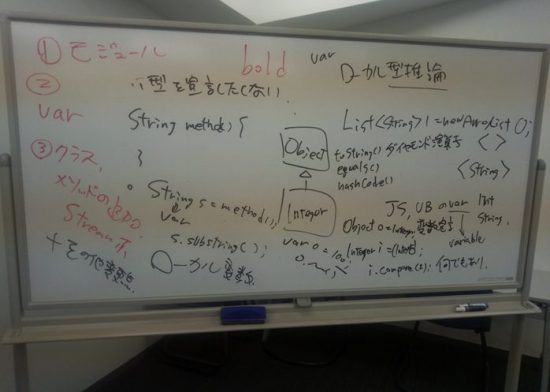 ① モジュール
bold
②
var
③ クラス、
メソッドの追加
Stream
+ その他変更点
型を宣言したくない
String method() {
}
String s = method();
var
s.substring();
ローカル変数
var
ローカル型推論
List<String> l = new ArrayList<>();
Object
toString() ダイヤモンド演算子
equals()
hashCode()
< >
<String>
Integer
JS, VB の var
int
String
Object o =
変数宣言
variable
var o = 100;
Integer i =
i.compare(2);
何でもあり